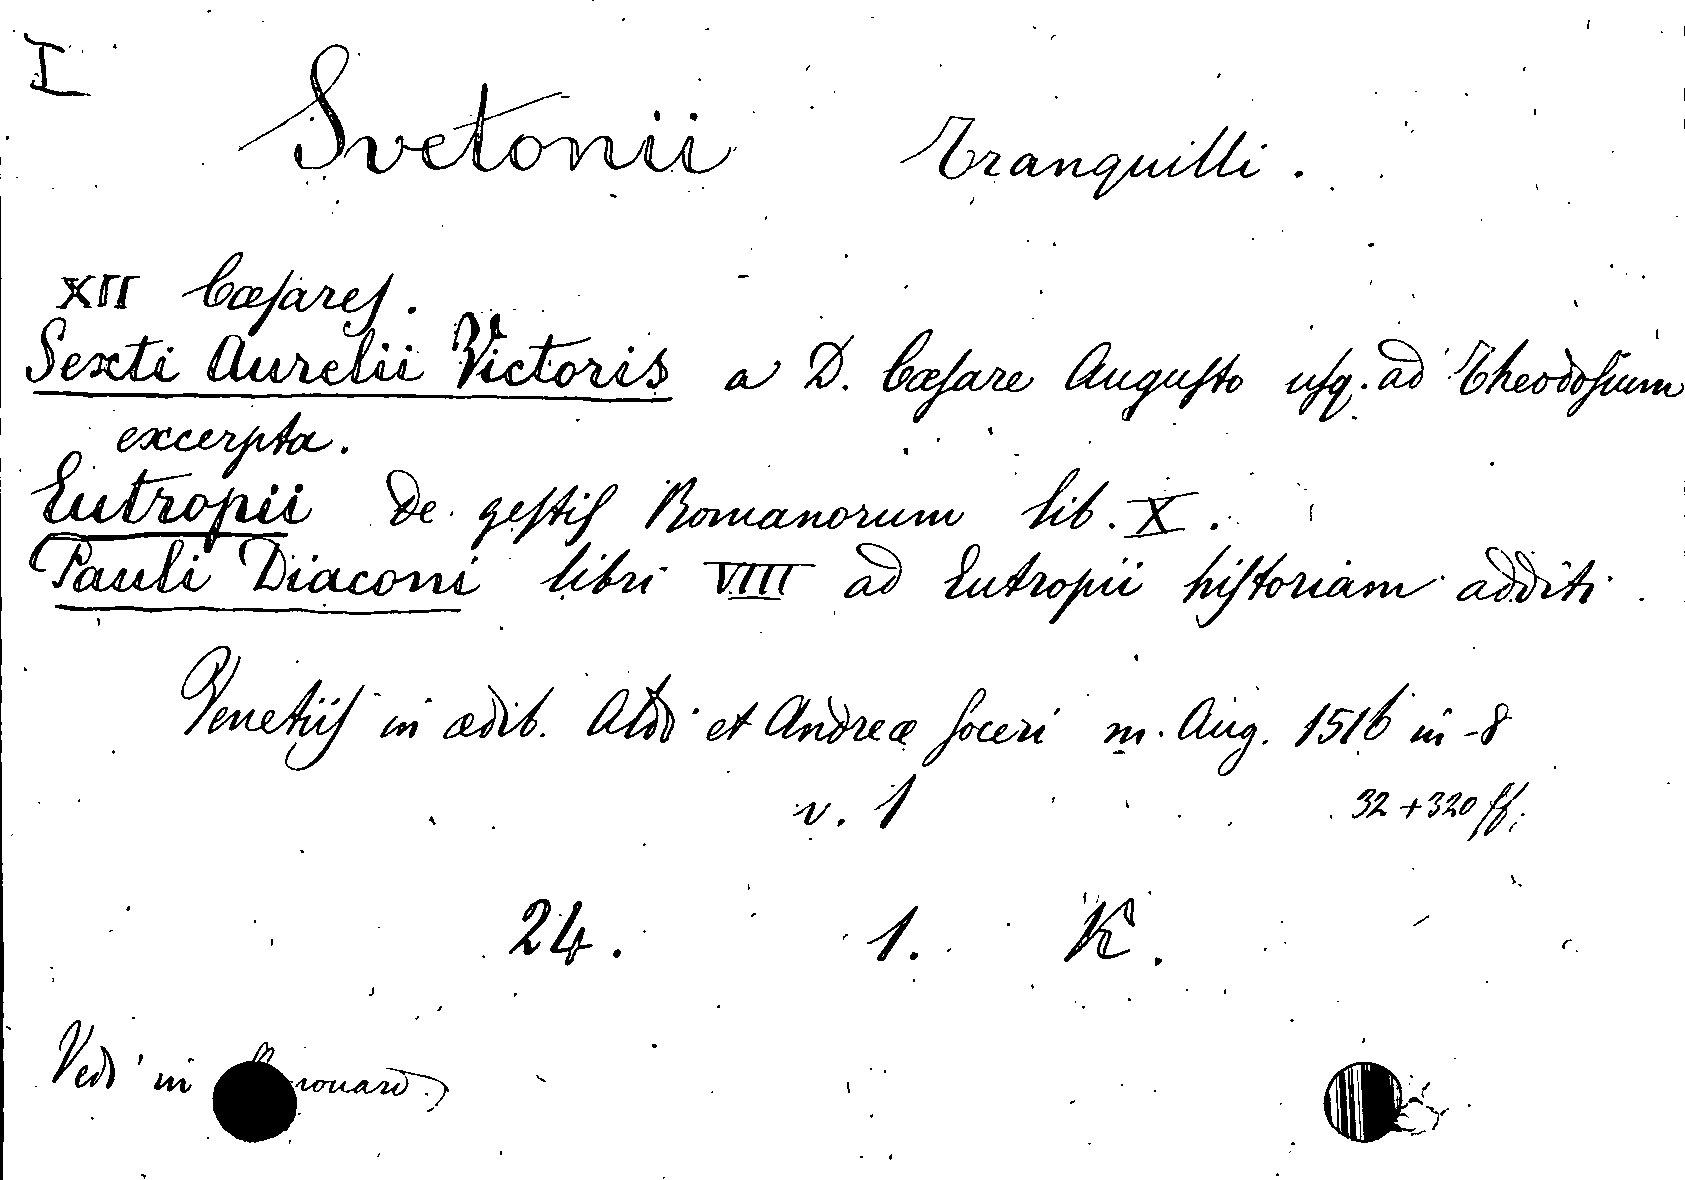 I
Svetonii Tranquilli.
XII Cæſareſ.
Sexti Aurelii Victoris a D. Cæſare Auguſto uſq. ad Theodoſium
excerpta.
Eutropii De geſtiſ Romanorum lib. X.
Pauli Diaconi libri VIII ad Eutropii hiſtoriam additi.
Venetiiſ in ædib. Aldi et Andreæ ſoceri m. Aug. 1516 in-8
v. 1 32+320 ff.
24. 1. K.
Vedi in